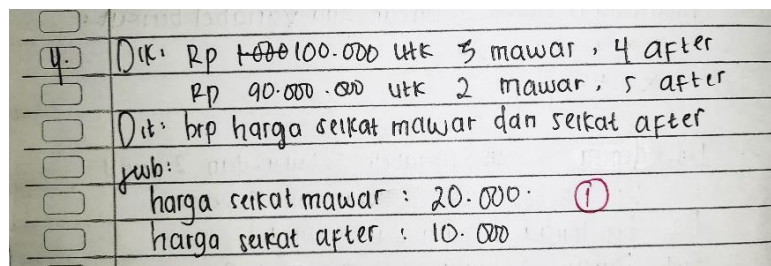 4. Dik: Rp 1000 100.000 utk 3 mawar, 4 after
Rp 90.000.000 utk 2 mawar, 5 after
Dit: brp harga seikat mawar dan seikat after
jwb:
harga seikat mawar : 20.000. 1
harga seikat after : 10.000